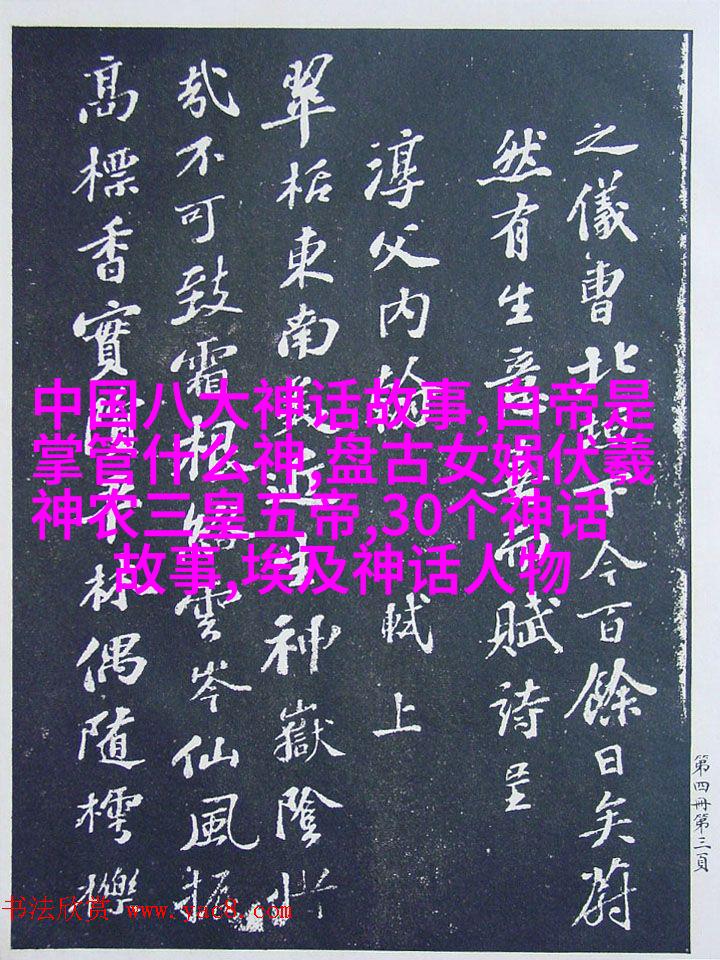 之儀曹北垣下今百餘日矣蔚
然有生意喜而賦詩呈
淳父內翰 軾上
翠栝東南美近生神嶽陰惜
哉不可致霜根絡雲岑仙風振
高標香實隕平林偶隨樗櫟
中国八大神话故事,白帝是
掌管什么神,盘古女娲伏羲
神农三皇五帝,30个神话
故事,埃及神话人物
第四冊第三頁
书法欣赏 www.yac8.com